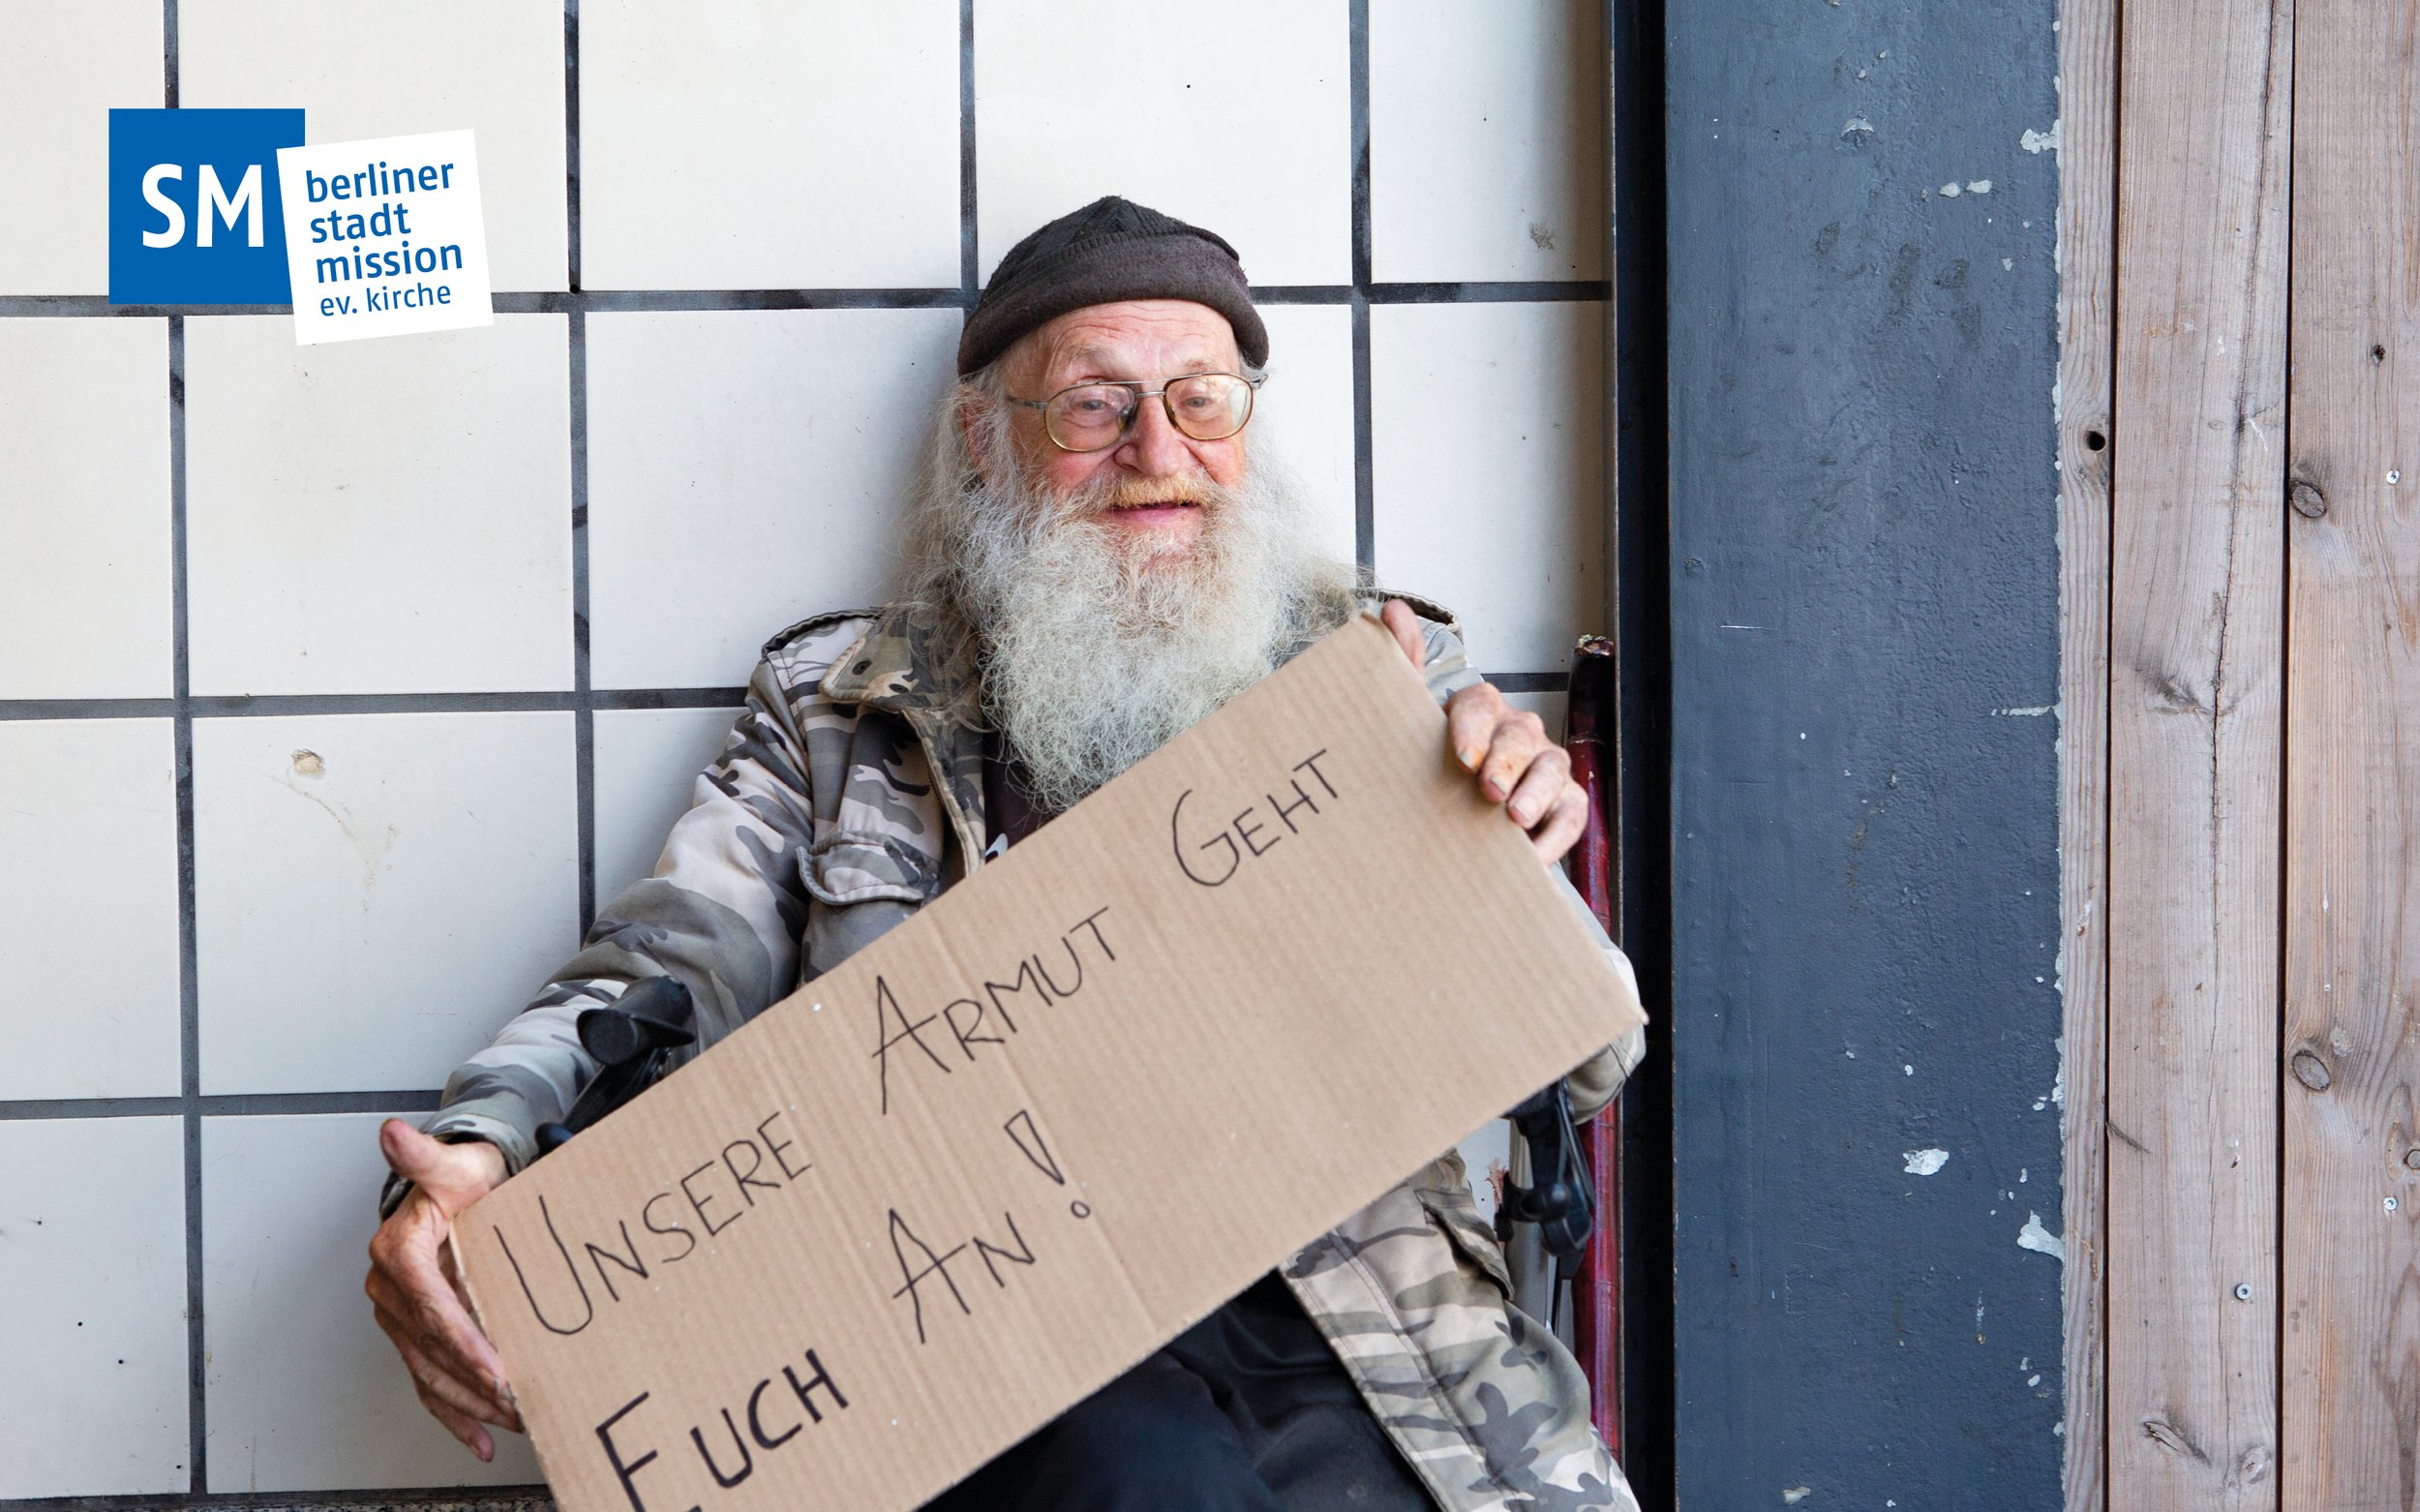 SM
berliner
stadt
mission
ev. kirche
UNSERE ARMUT GEHT
EUCH AN!